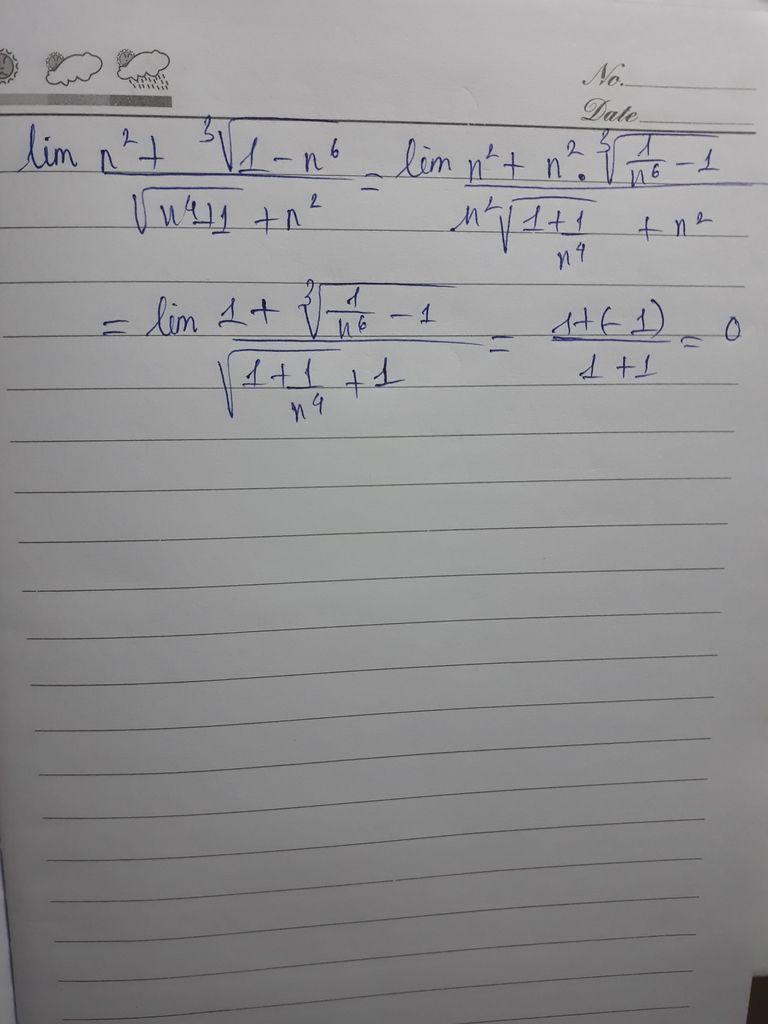 No.
Date
lim (n² + ∛(1 - n⁶)) / (√(n⁴+1) + n²) = lim (n² + n² . ∛(1/n⁶ - 1)) / (n² √(1 + 1/n⁴) + n²)
= lim (1 + ∛(1/n⁶ - 1)) / (√(1 + 1/n⁴) + 1) = (1+(-1)) / (1+1) = 0